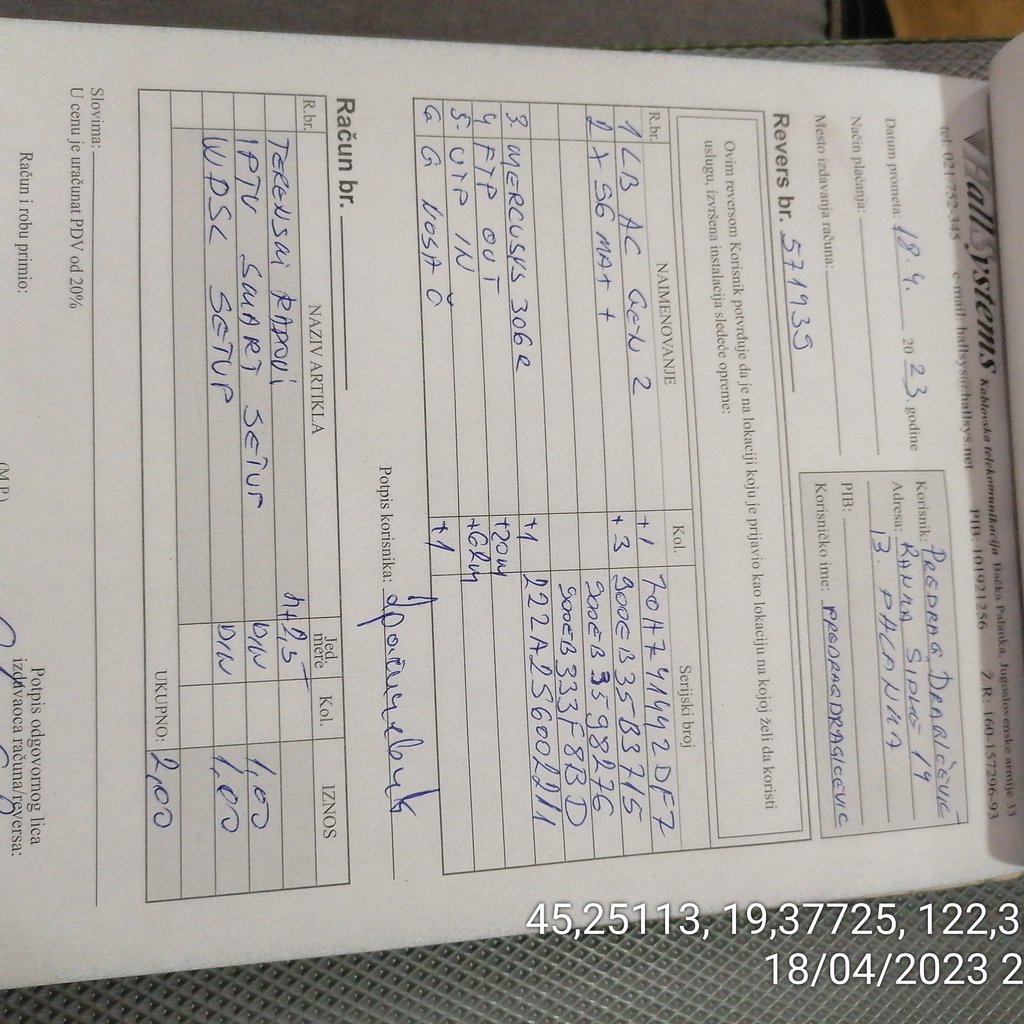 HallSystems Kablovska telekomunikacija Bačka Palanka, Jugoslovenske armije 33
tel: 021/752-345 e-mail: hallsys@hallsys.net PIB: 101921256 Ž.R: 160-157296-93
Datum prometa: 18.4. 2023. godine
Način plaćanja:
Mesto izdavanja računa:
Korisnik: PREDRAG DRAGIĆEVIĆ
Adresa: RANKA ŠIPKE 19
B. PALANKA
PIB:
Korisničko ime: PREDRAGDRAGICEVIC
Revers br. 571939
Ovim reversom Korisnik potvrđuje da je na lokaciji koju je prijavio kao lokaciju na kojoj želi da koristi
uslugu, izvršena instalacija sledeće opreme:
R.br. NAIMENOVANJE Kol. Serijski broj
1 LB AC GEN 2 +1 70A7414442DF7
2 X S6 MAX + +3 900EB35B3715
900EB3598276
900EB333F8BD
3. MERCUSYS 306R +1 222A2560022 11
4 FTP OUT +20m
5. UTP IN +6km
6 G NOSAČ +1
Potpis korisnika:
Račun br.
R.br. NAZIV ARTIKLA Jed. mere Kol. IZNOS
TERENSKI RADOVI h+2,5
IPTV SMART SETUP DIN 1,00
WDSL SETUP DIN 1,00
UKUPNO: 2,00
Slovima:
U cenu je uračunat PDV od 20%
Račun i robu primio:
(M.P.)
Potpis odgovornog lica
izdavaoca računa/reversa:
45,25113, 19,37725, 122,3
18/04/2023 2